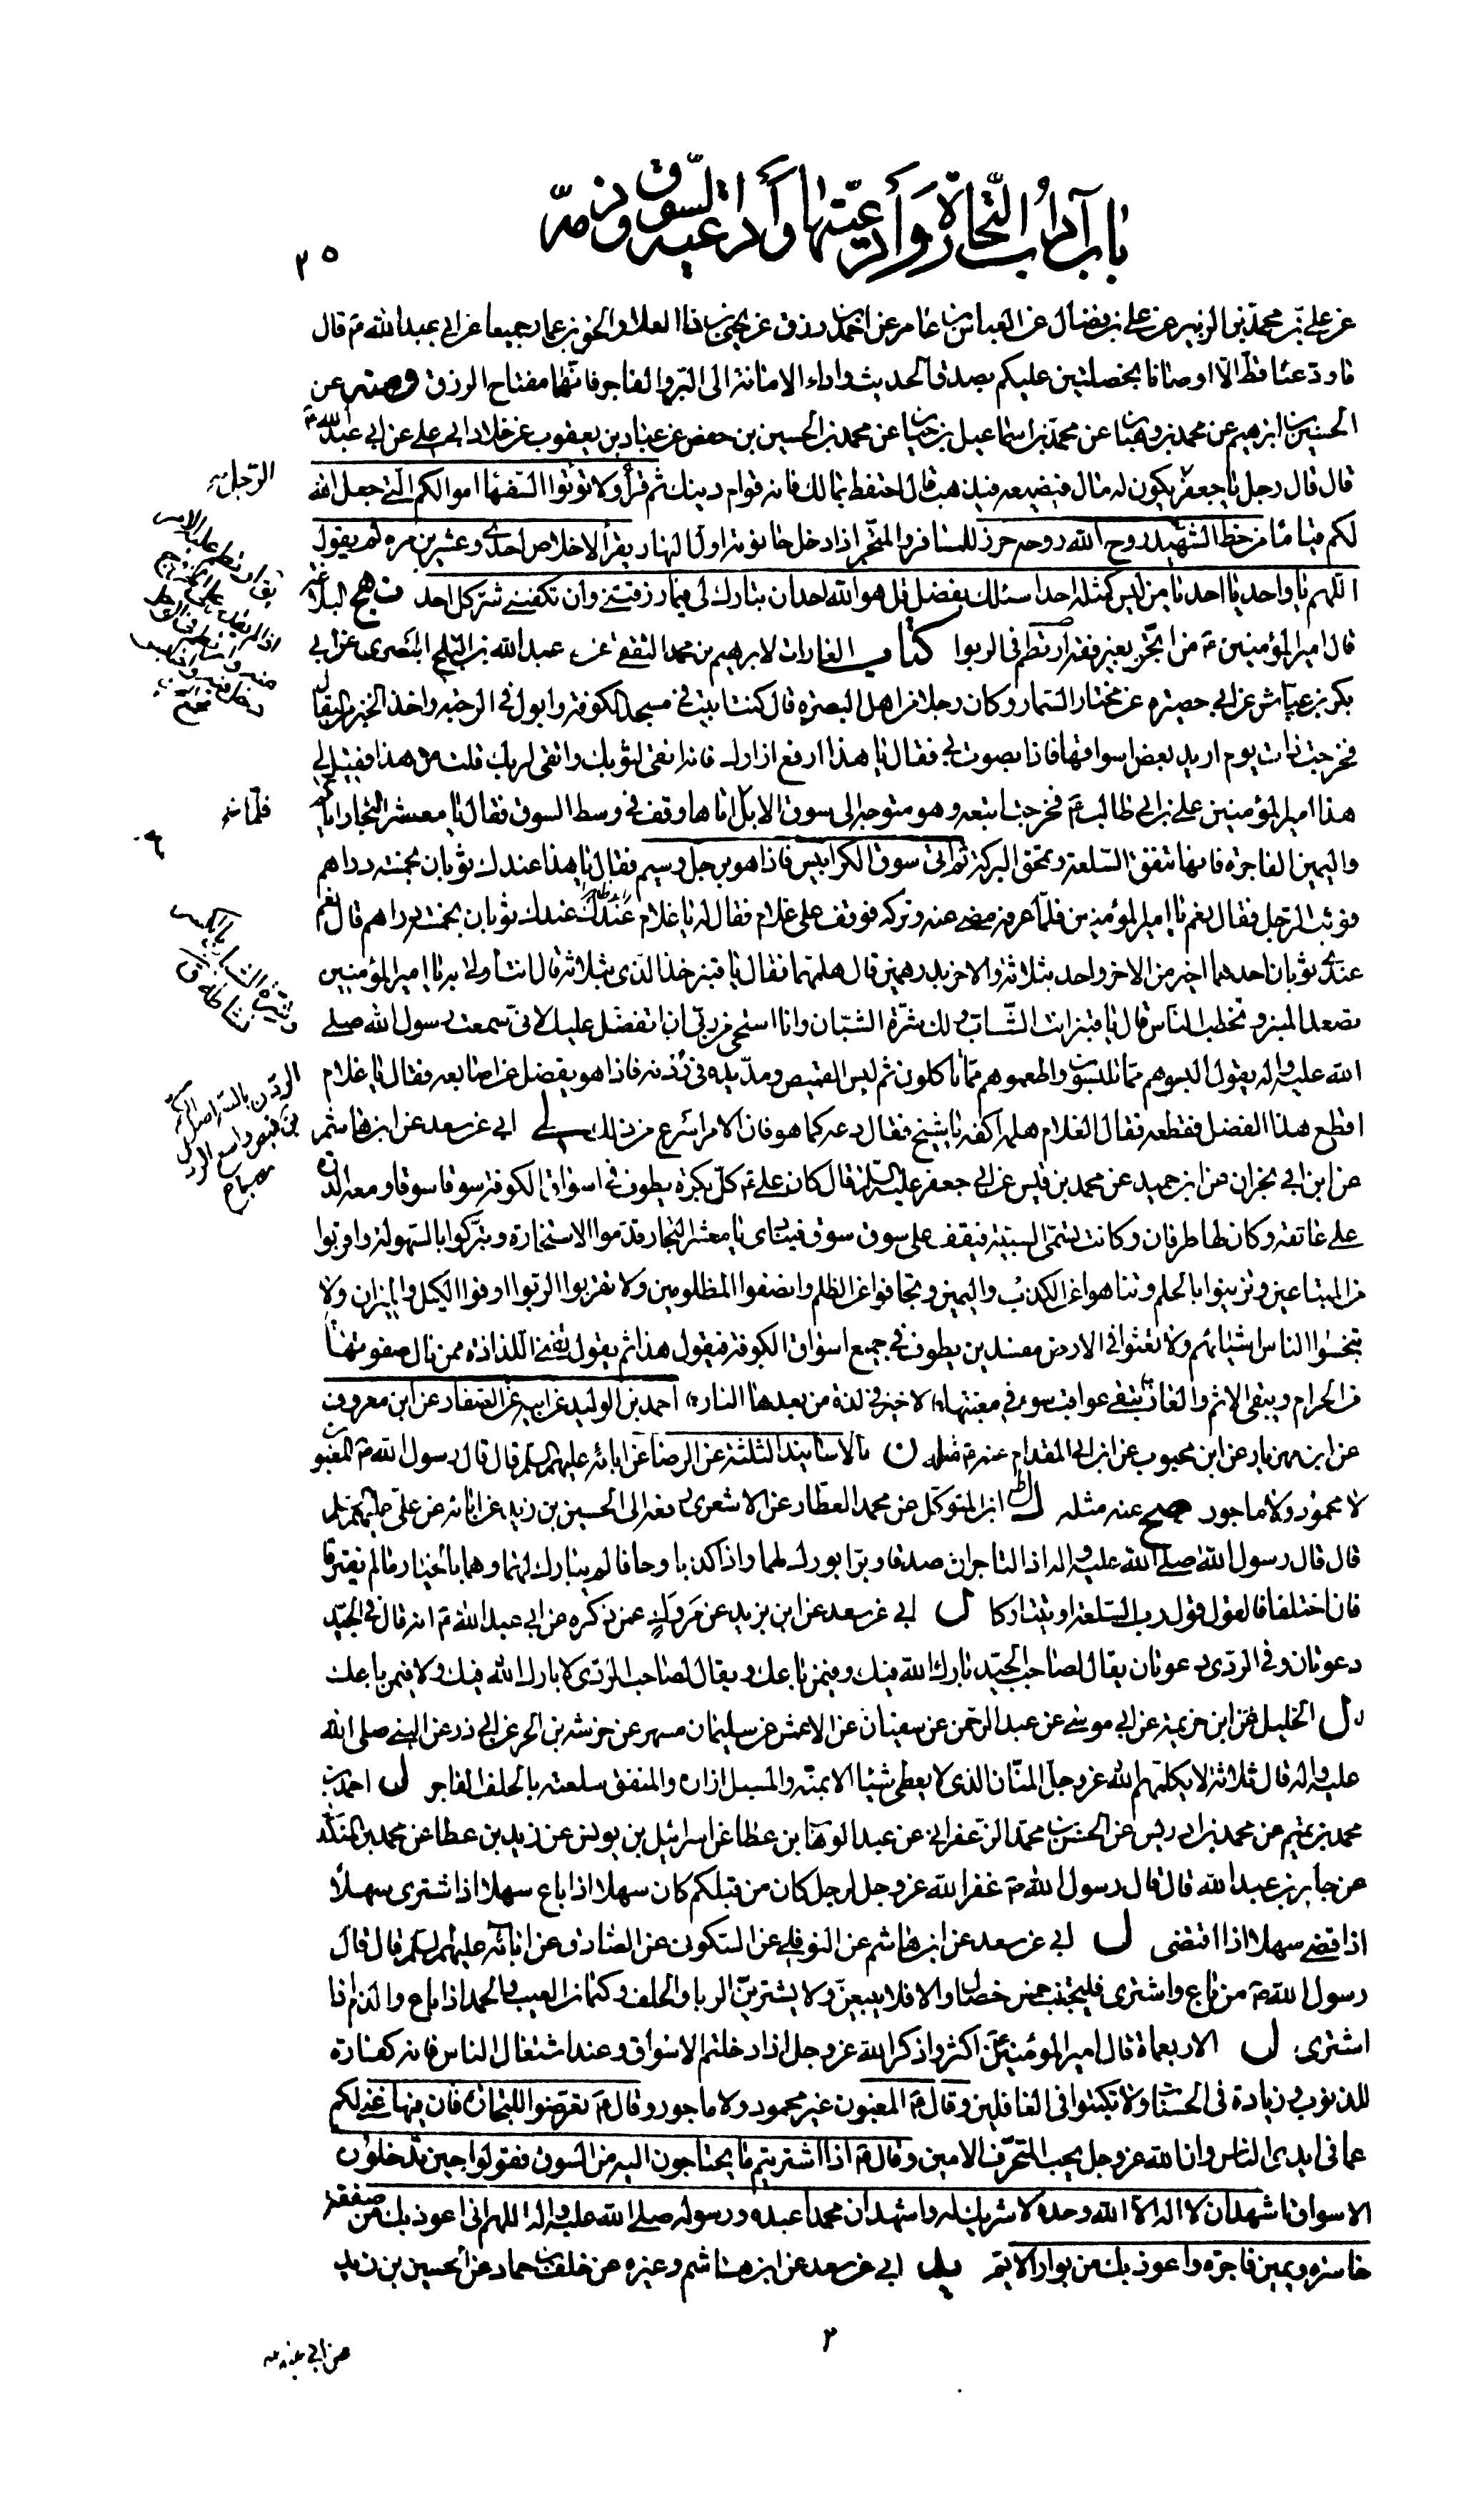 باب آداب التجارة وأدعيتها وأدعية السوق وذمه
٢٥
عن علي بن محمد بن الزبير عن علي بن فضال عن العباس بن عامر عن احمد بن رزق عن يحيى بن العلاء و عمار جميعا عن ابي عبدالله ع قال
ما ودعنا قط الا اوصانا بخصلتين عليكم بصدق الحديث واداء الامانة الى البر والفاجر فانهما مفتاح الرزق ومنه عن
الحسين بن ابرهيم عن محمد بن وهبان عن محمد بن اسماعيل بن حيان عن محمد بن الحسين بن حفص عن عباد بن يعقوب عن خلاد ابي علي عن ابي عبدالله ع
قال قال رجل يا جعفر يكون له مال فيضيعه فيذهب قال احتفظ بمالك فانه قوام دينك ثم قرأ ولا تؤتوا السفهاء اموالكم التي جعل الله
لكم قياما من خط الشهيد روح الله روحه حرز للمسافر والمتجر اذا دخل حانوته اول النهار يقرأ الاخلاص احدى وعشرين مرة ثم يقول
اللهم يا واحد يا احد يا من ليس كمثله احد اسئلك بفضل قل هو الله احد ان تبارك لي فيما رزقتني وان تكفيني شر كل احد نهج البلاغة
قال امير المؤمنين ع من اتجر بغير فقه ارتطم في الربوا كتاب الغارات لابرهيم بن محمد الثقفي عن عبد الله بن البلج البصرى عن ابي
بكر بن عياش عن ابي حصيرة عن مختار التمار وكان رجلا من اهل البصرة قال كنت ابيت في مسجد الكوفة وابول في الرحبة واخذ الخبز من البقال
فخرجت ذات يوم اريد بعض اسواقها فاذا بصوت بي فقال يا هذا ارفع ازارك فانه انقى لثوبك واتقى لربك قلت من هذا فقيل لي
هذا امير المؤمنين علي بن ابي طالب ع فخرجت اتبعه وهو متوجه الى سوق الابل اتاها وقف في وسط السوق فقال يا معشر التجار اياكم
واليمين الفاجرة فانها تنفق السلعة وتمحق البركة ثم اتى سوق الكرابيس فاذا هو برجل وسيم فقال يا هذا عندك ثوبان بخمسة دراهم
فوثب الرجل فقال نعم يا امير المؤمنين فلما عرفه مضى عنه وتركه فوقف على غلام فقال له يا غلام عندك ثوبان بخمسة دراهم قال نعم
عندي ثوبان احدهما اخير من الاخر واحد بثلاثة والاخر بدرهمين قال هلمهما فقال يا قنبر خذ الذي بثلاثة قال انت اولى به يا امير المؤمنين
تصعد المنبر وتخطب الناس قال يا قنبر انت الشاب ولك شرة الشباب وانا استحي من ربي ان اتفضل عليك لاني سمعت رسول الله صلى
الله عليه واله يقول البسوهم مما تلبسون واطعموهم مما تاكلون ثم لبس القميص ومد يده في ردنه فاذا هو يفضل عن اصابعه فقال يا غلام
اقطع هذا الفضل فقطعه فقال الغلام هلم اكفه يا شيخ فقال دعه كما هو فان الامر اسرع من ذلك ابي عن سعد عن ابن هاشم
عن ابن ابي نجران عن ابن حميد عن محمد بن قيس عن ابي جعفر عليه السلام قال كان علي ع كل بكرة يطوف في اسواق الكوفة سوقا سوقا ومعه الدرة
على عاتقه وكان لها طرفان وكانت تسمى السبيبة فيقف على سوق سوق فينادي يا معشر التجار قدموا الاستخارة وتبركوا بالسهولة واقتربوا
من المبتاعين وتزينوا بالحلم وتناهوا عن الكذب واليمين وتجافوا عن الظلم وانصفوا المظلومين ولا تقربوا الربوا اوفوا الكيل والميزان ولا
تبخسوا الناس اشيائهم ولا تعثوا في الارض مفسدين يطوف في جميع اسواق الكوفة فيقول هذا ثم يقول تفنى اللذاذة ممن نال صفوتها
من الحرام ويبقى الاثم والعار تبقى عواقب سوء في مغبتها لا خير في لذة من بعدها النار احمد بن الوليد عن ابيه عن الصفار عن ابن معروف
عن ابن مهزيار عن ابن محبوب عن ابن ابي المقدام عنه ع مثله ن بالاسانيد الثلثة عن الرضا عن ابائه عليهم السلم قال قال رسول الله ص المغبون
لا محمود ولا ماجور صح عنه مثله ل ابن المتوكل عن محمد العطار عن الاشعرى رفعه الى الحسين بن زيد عن ابائه عن علي عليهم السلم
قال قال رسول الله صلى الله عليه واله اذا التاجران صدقا وبرا بورك لهما واذا كذبا وخانا لم يبارك لهما وهما بالخيار ما لم يفترقا
فان اختلفا فالقول قول رب السلعة او يتتاركا ل ابي عن سعد عن ابن يزيد عن مروك عمن ذكره عن ابي عبد الله ع انه قال في الجيد
دعوتان وفي الردى دعوتان يقال لصاحب الجيد بارك الله فيك وفيمن باعك ويقال لصاحب الردى لا بارك الله فيك ولا فيمن باعك
ل الخليل عن ابن خزيمة عن ابي موسى عن عبد الرحمن عن سفيان عن الاعمش عن سليمان مسهر عن خرشه بن الحر عن ابي ذر عن النبي صلى الله
عليه واله قال ثلاثة لا يكلمهم الله عز وجل المنان الذي لا يعطي شيئا الا بمنه والمسبل ازاره والمنفق سلعته بالحلف الفاجر ل احمد بن
محمد بن تميم عن محمد بن ادريس عن الحسن بن محمد الزعفراني عن عبد الوهاب بن عطا عن اسرائيل بن يونس عن زيد بن عطا عن محمد بن المنكدر
عن جابر بن عبد الله قال قال رسول الله ص غفر الله عز وجل لرجل كان من قبلكم كان سهلا اذا باع سهلا اذا اشترى سهلا
اذا قضى سهلا اذا اقتضى ل ابي عن سعد عن ابن هاشم عن النوفلي عن السكوني عن الصادق عن ابائه عليهم السلم قال قال
رسول الله ص من باع واشترى فليجتنب خمس خصال والا فلا يبيعن ولا يشترين الربا والحلف وكتمان العيب والحمد اذا باع والذم اذا
اشترى ل الاربعماة قال امير المؤمنين ع اكثروا ذكر الله عز وجل اذا دخلتم الاسواق وعند اشتغال الناس فانه كفارة
للذنوب وزيادة في الحسنات ولا تكتبوا في الغافلين وقال ع المغبون غير محمود ولا ماجور وقال ع تعرضوا للتجارة فان فيها غنى لكم
عما في ايدى الناس وان الله عز وجل يحب المتحرف الامين وقال ع اذا اشتريتم ما يحتاجون اليه من السوق فقولوا حين تدخلون
الاسواق اشهد ان لا اله الا الله وحده لا شريك له واشهد ان محمدا عبده ورسوله صلى الله عليه واله اللهم اني اعوذ بك من صفقة
خاسرة ويمين فاجرة واعوذ بك من بوار الايم يد ابي عن سعد عن ابن هاشم وغيره عن خلف بن حماد عن الحسين بن زيد
الرجل
فلما
الردن بالضم اصل الكم
مصباح
٢
عن ابي عبد